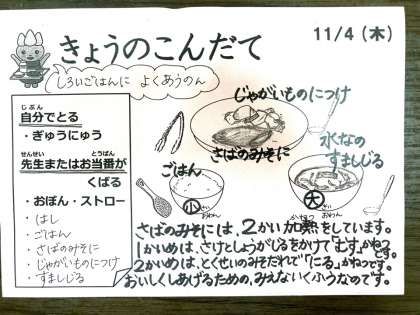 きょうのこんだて
11/4 (木)
しろいごはんに よくあうのん
じぶん
自分でとる
・ぎゅうにゅう
せんせい とうばん
先生またはお当番が
くばる
・おぼん・ストロー
・はし
・ごはん
・さばのみそに
・じゃがいものにつけ
・すましじる
じゃがいものにつけ
さばのみそに
水なの
すましじる
ごはん
小
おわん
大
おわん
さばのみそには、2かい加熱をしています。
1かいめは、さけとしょうがじるをかけて「むす」かねつです。
2かいめは、とくせいのみそだれで「にる」かねつです。
おいしくしあげるための、みえないくふうなのです。